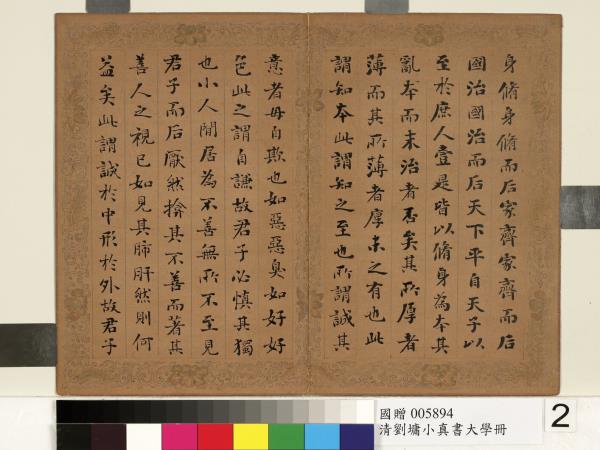 身脩身脩而后家齊家齊而后
國治國治而后天下平自天子以
至於庶人壹是皆以脩身為本其
亂本而末治者否矣其所厚者
薄而其所薄者厚未之有也此
謂知本此謂知之至也所謂誠其
意者毋自欺也如惡惡臭如好好
色此之謂自謙故君子必慎其獨
也小人閒居為不善無所不至見
君子而后厭然揜其不善而著其
善人之視己如見其肺肝然則何
益矣此謂誠於中形於外故君子
國贈 005894
清劉墉小真書大學冊
2